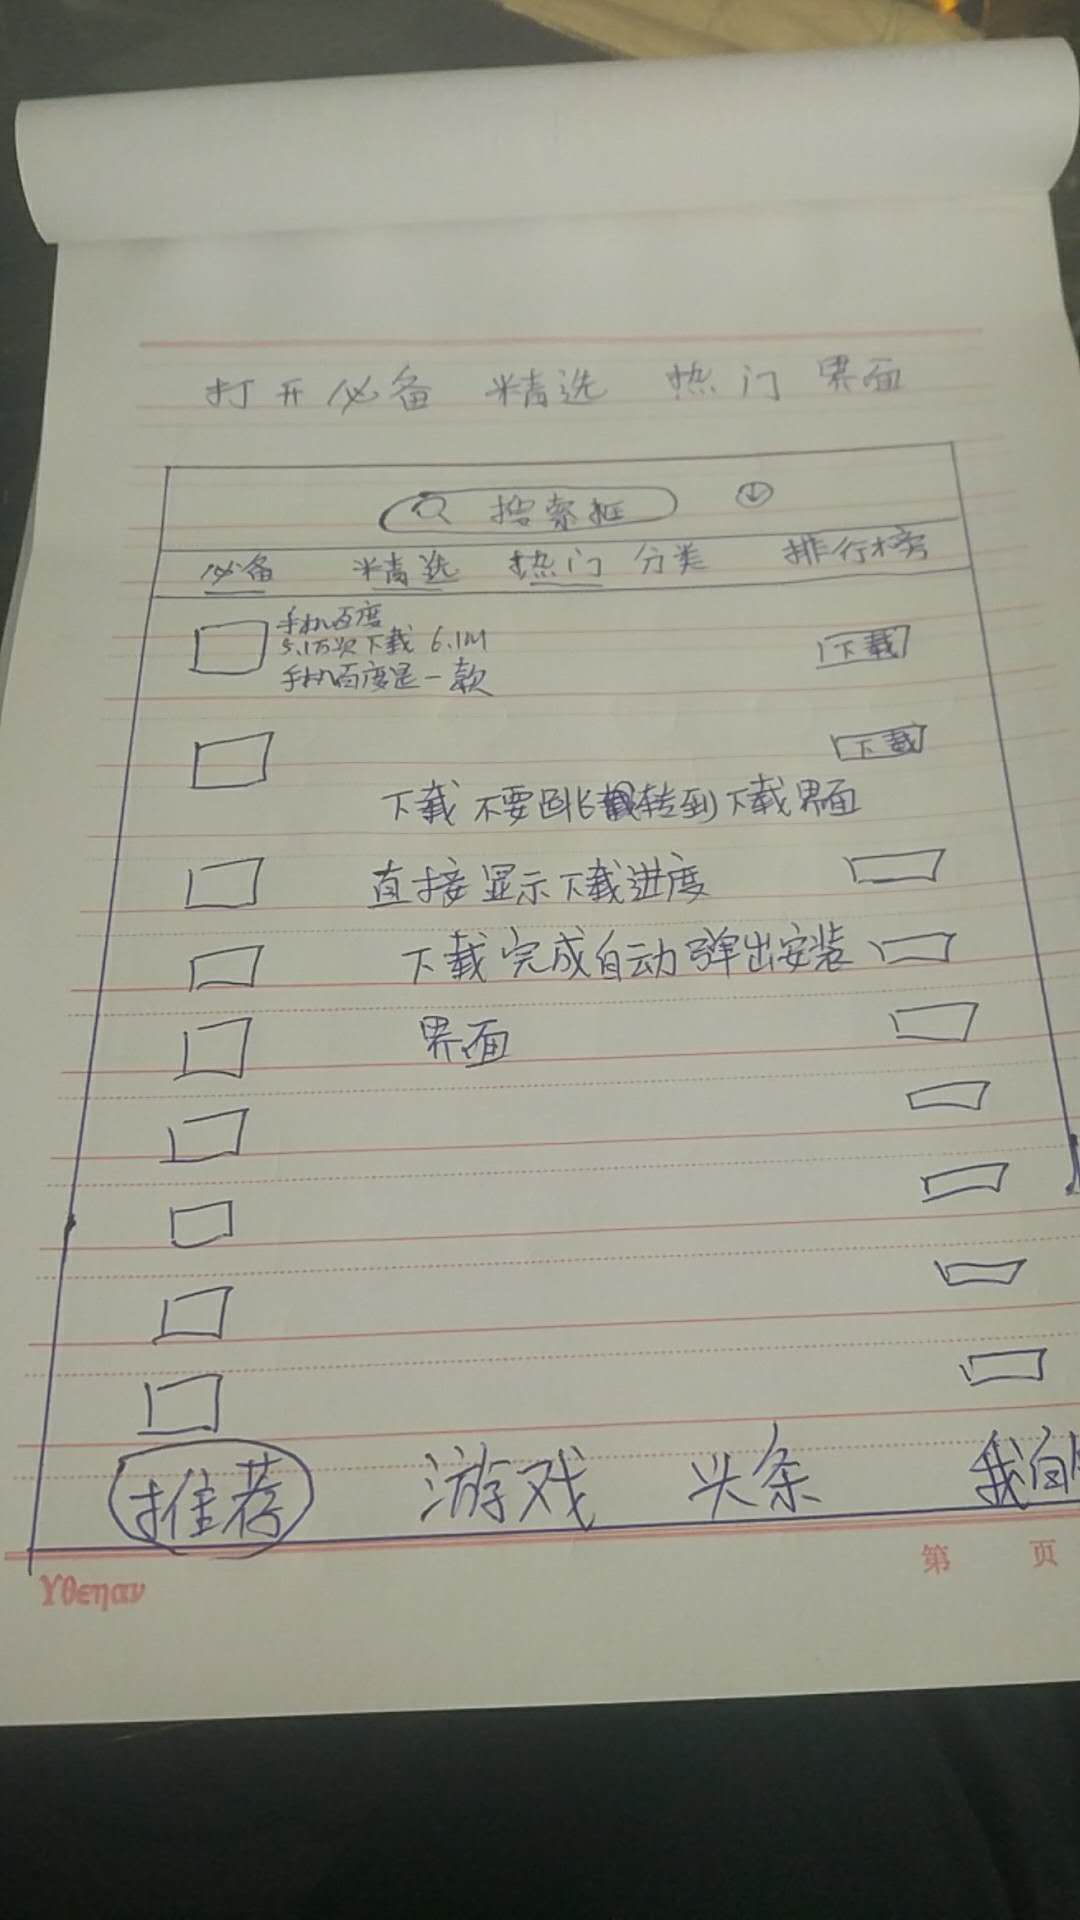 打开必备 精选 热门 界面
搜索框
必备 精选 热门 分类 排行榜
手机百度
5.1万次下载 6.1M
手机百度是一款
下载
下载
下载不要跳转到下载界面
直接显示下载进度
下载完成自动弹出安装
界面
推荐 游戏 头条 我的
Yθεηαν
第 页